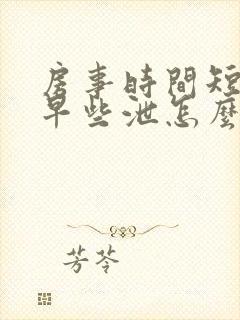 房事時間短
早些泄怎麼
芳苓